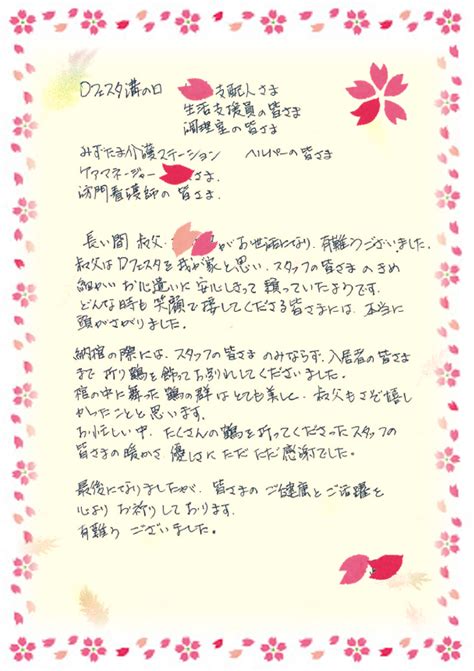 Dフェスタ溝の口 支配人さま
生活支援員の皆さま
調理室の皆さま
みずたま介護ステーション ヘルパーの皆さま
ケアマネージャー さま
訪問看護師の皆さま
長い間 叔父・ がお世話になり、有難うございました。
叔父はDフェスタを我が家と思い、スタッフの皆さまのきめ
細かいお心遣いに安心しきって頼っていたようです。
どんな時も笑顔で接してくださる皆さまには、本当に
頭がさがりました。
納棺の際には、スタッフの皆さまのみならず、入居者の皆さま
まで折り鶴を飾ってお別れしてくださいました。
棺の中に舞った鶴の群はとても美しく、叔父もさぞ嬉し
かったことと思います。
お忙しい中、たくさんの鶴を折ってくださったスタッフの
皆さまの暖かさ 優しさに ただただ感謝でした。
最後になりましたが、皆さまのご健康とご活躍を
心よりお祈りしております。
有難うございました。